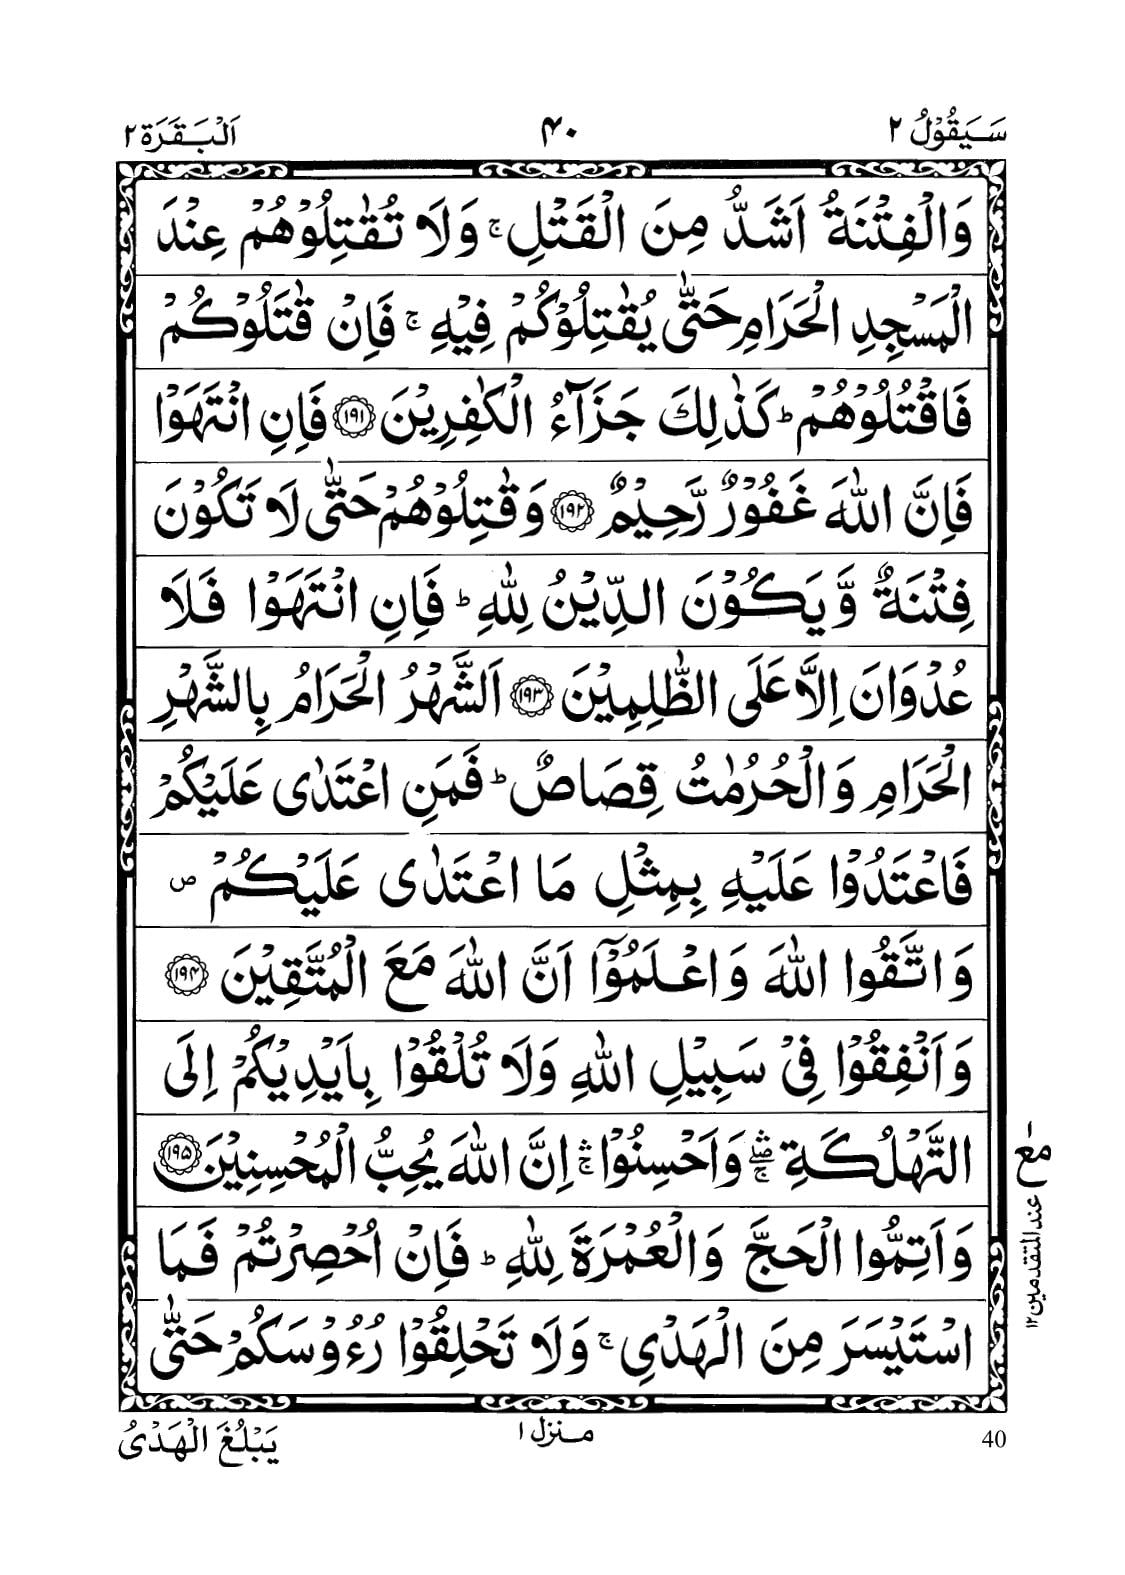 سَيَقُوْلُ ٢
۴۰
اَلْبَقَرَة ٢
وَالْفِتْنَةُ اَشَدُّ مِنَ الْقَتْلِ ۚ وَلَا تُقٰتِلُوْهُمْ عِنْدَ
الْمَسْجِدِ الْحَرَامِ حَتّٰى يُقٰتِلُوْكُمْ فِيْهِ ۚ فَاِنْ قٰتَلُوْكُمْ
فَاقْتُلُوْهُمْ ؕ كَذٰلِكَ جَزَآءُ الْكٰفِرِيْنَ ﴿۱۹۱﴾ فَاِنِ انْتَهَوْا
فَاِنَّ اللّٰهَ غَفُوْرٌ رَّحِيْمٌ ﴿۱۹۲﴾ وَقٰتِلُوْهُمْ حَتّٰى لَا تَكُوْنَ
فِتْنَةٌ وَّيَكُوْنَ الدِّيْنُ لِلّٰهِ ؕ فَاِنِ انْتَهَوْا فَلَا
عُدْوَانَ اِلَّا عَلَى الظّٰلِمِيْنَ ﴿۱۹۳﴾ اَلشَّهْرُ الْحَرَامُ بِالشَّهْرِ
الْحَرَامِ وَالْحُرُمٰتُ قِصَاصٌ ؕ فَمَنِ اعْتَدٰى عَلَيْكُمْ
فَاعْتَدُوْا عَلَيْهِ بِمِثْلِ مَا اعْتَدٰى عَلَيْكُمْ ص
وَاتَّقُوا اللّٰهَ وَاعْلَمُوْٓا اَنَّ اللّٰهَ مَعَ الْمُتَّقِيْنَ ﴿۱۹۴﴾
وَاَنْفِقُوْا فِيْ سَبِيْلِ اللّٰهِ وَلَا تُلْقُوْا بِاَيْدِيْكُمْ اِلَى
التَّهْلُكَةِ ۛۖۚ وَاَحْسِنُوْا ۛۚ اِنَّ اللّٰهَ يُحِبُّ الْمُحْسِنِيْنَ ﴿۱۹۵﴾
وَاَتِمُّوا الْحَجَّ وَالْعُمْرَةَ لِلّٰهِ ؕ فَاِنْ اُحْصِرْتُمْ فَمَا
اسْتَيْسَرَ مِنَ الْهَدْيِ ۚ وَلَا تَحْلِقُوْا رُءُوْسَكُمْ حَتّٰى
مع
عند المتقدمين ١٢
40
منزل ١
يَبْلُغَ الْهَدْىُ